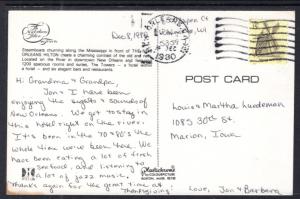 Dec 8, 1978
Steamboats churning along the Mississippi in front of THE
ORLEANS HILTON create a charming contrast of the old and
Located on the River in downtown New Orleans and
1200 spacious rooms and suites, The Towers - a hotel within
a hotel - and six elegant bars and restaurants.
POST CARD
Hi Grandma & Grandpa,
Jon & I have been
enjoying the sights & sounds of
New Orleans. We got to stay in
this hotel right on the river.
It's been in the 70's & 80's the
whole time we've been here. We
have been eating a lot of fresh
seafood, and listening to
a lot of jazz music.
Thanks again for the great time at
Thanksgiving!
Love, Jon & Barbara
Louis & Martha
1095 30th St.
Marion, Iowa